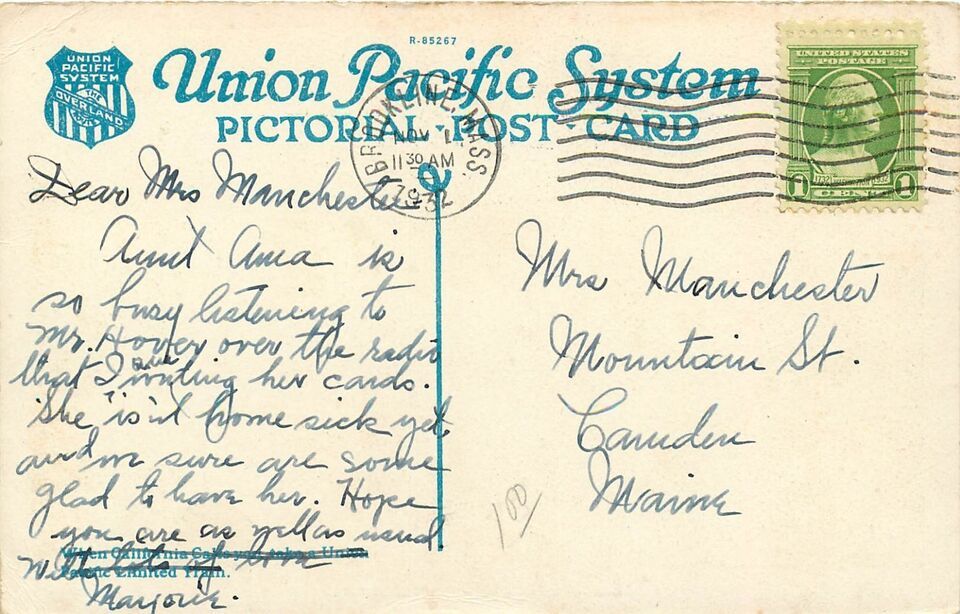 R-85267
UNION
PACIFIC
SYSTEM
THE
OVERLAND
Union Pacific System
PICTORIAL · POST · CARD
BROOKLINE, MASS
NOV 1
11 30 AM
1932
UNITED STATES
POSTAGE
1732
1932
1 1
Dear Mrs Manchester
Aunt Ama is
so busy listening to
Mr. Hover over the radio
that I am writing her cards.
She is'nt home sick yet,
and m sure are some
glad to have her. Hope
you are as well as usual
When California Calls you take a Union
With lots of love
Pacific Limited Train.
Marjorie.
Mrs Manchester
Mountain St.
Camden
Maine
100